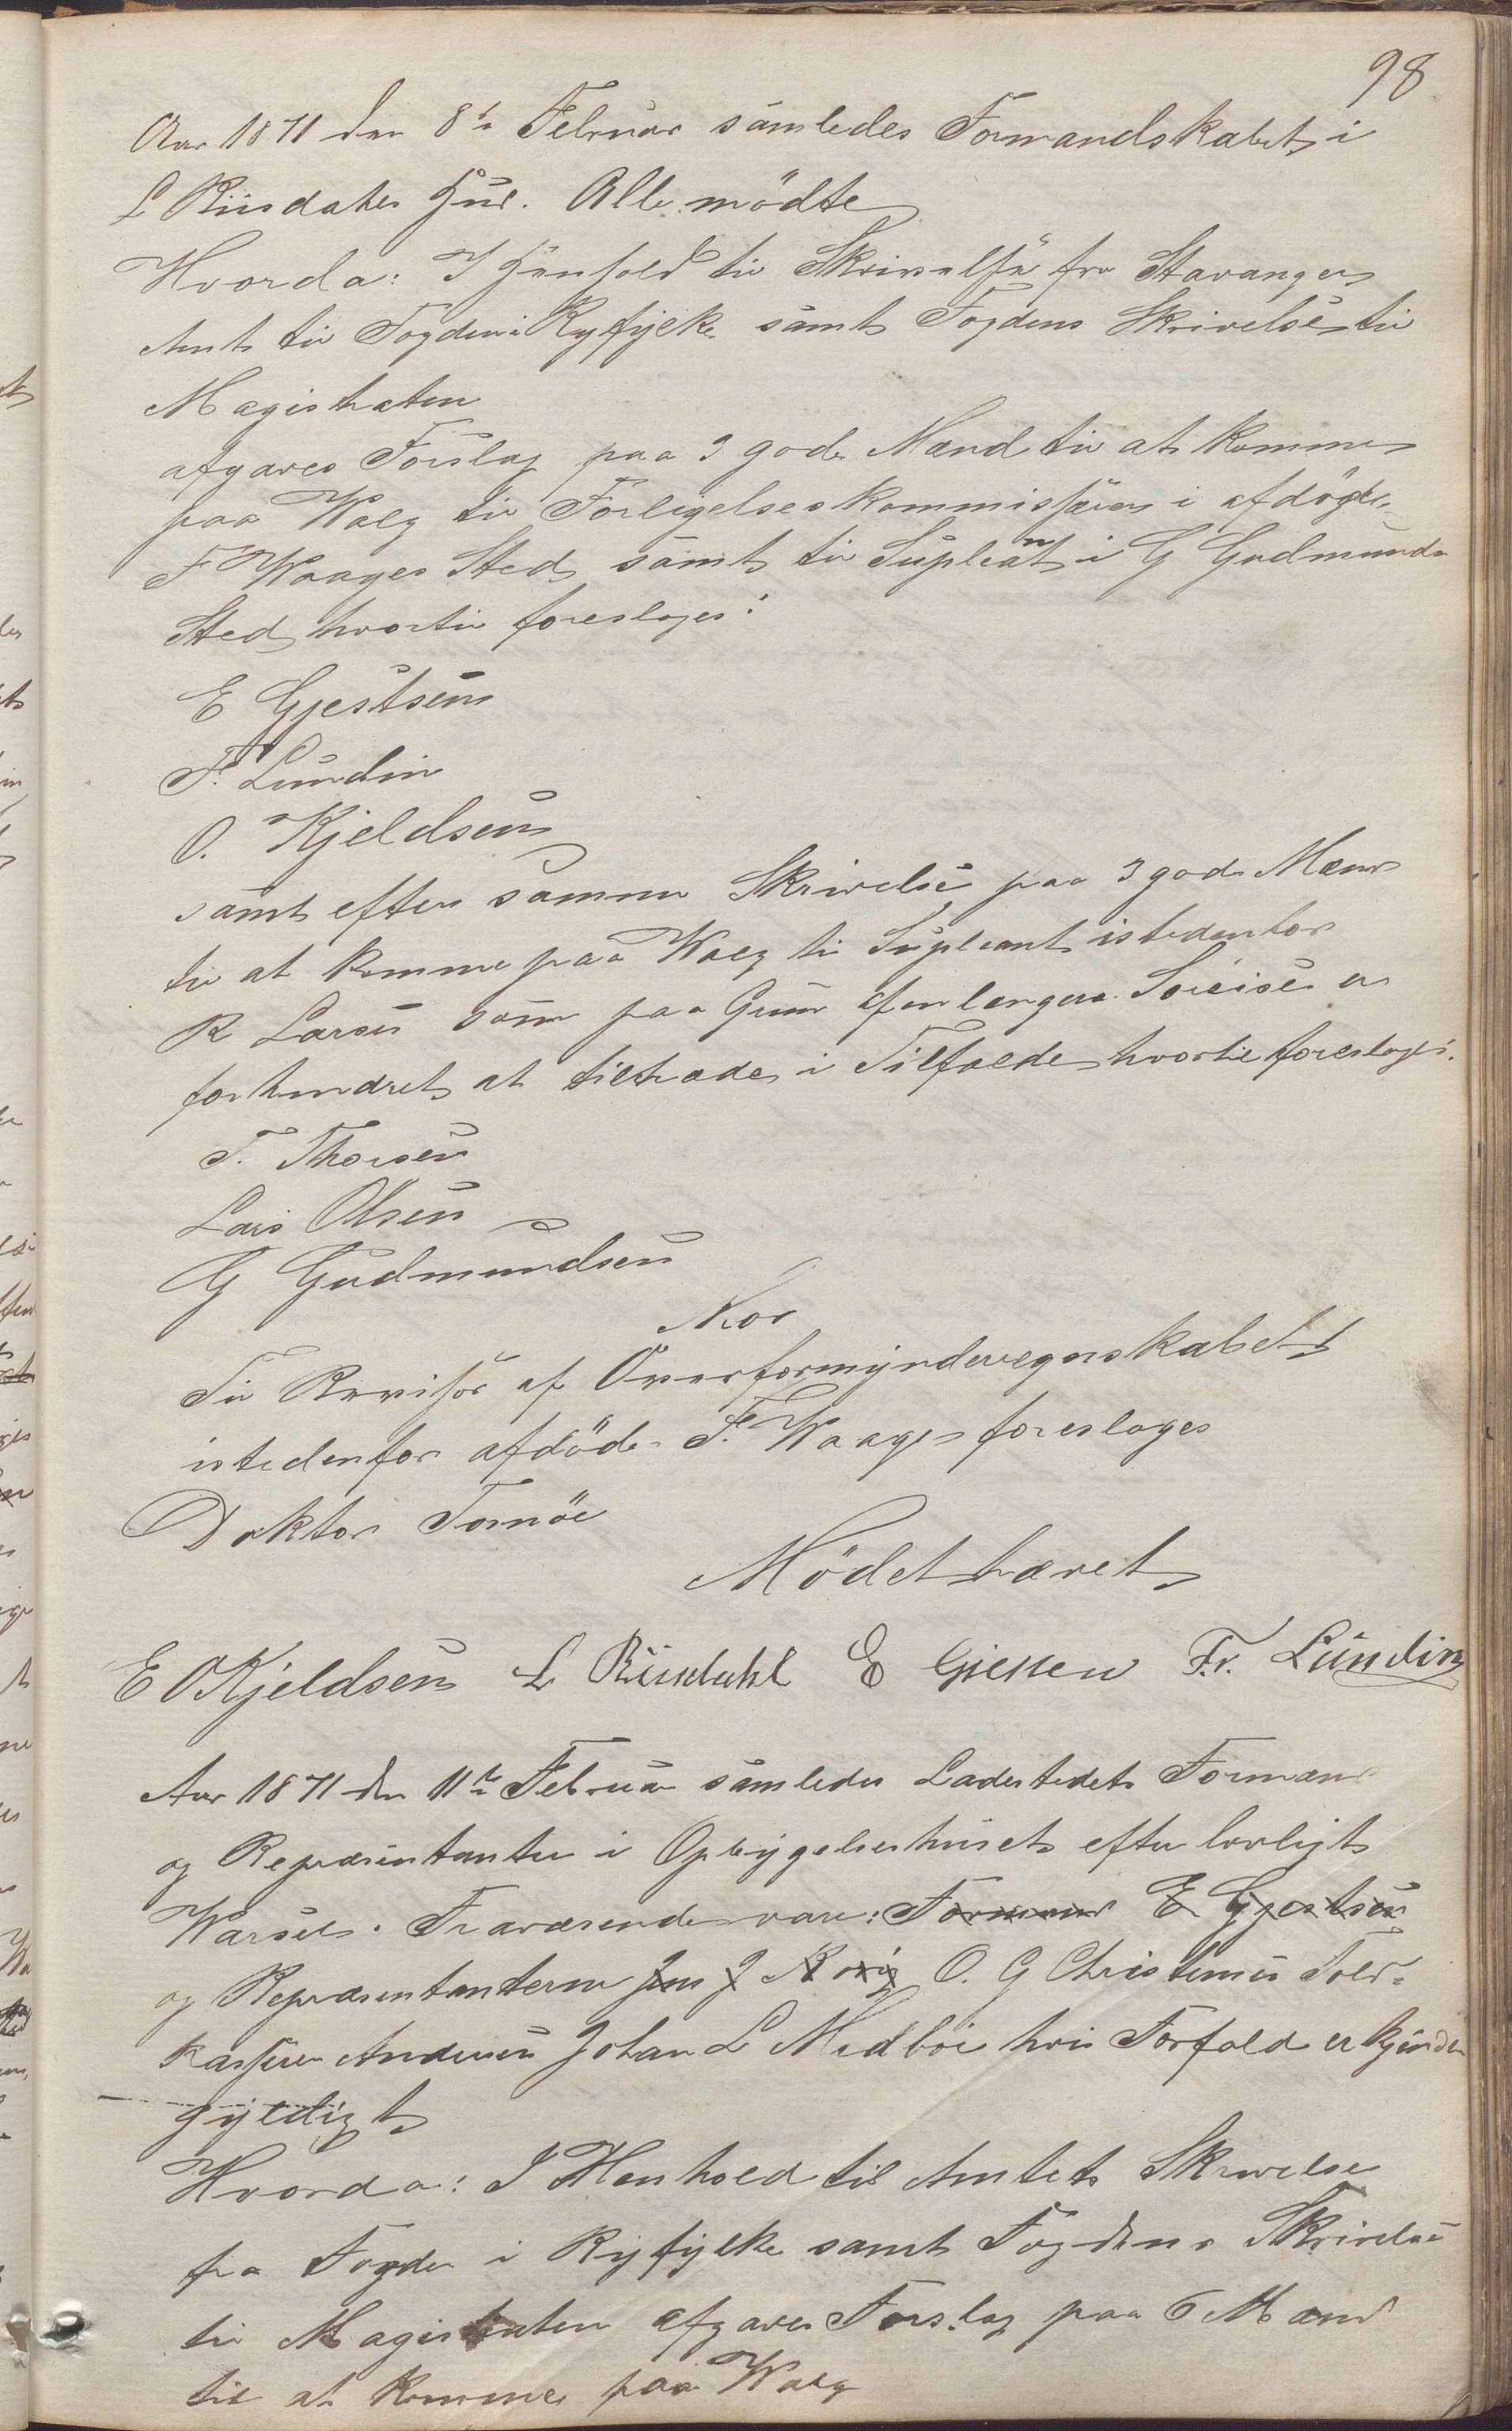 98
Aar 1871 den 8de Februar samledes Formandskabet i
L Riisdahls Huus. Alle mödte
Hvorda: I Henhold til Skrivelse fra Stavanger
Amt til Fogden i Ryfylke samt Fogdens Skrivelse til
Magistraten
afgaves Forslag paa 3 gode Mænd til at komme
paa Walg til Forligelseskommissær i afdøde
F Waages Sted samt til Supleant i G Gudmunds
Sted hvortil foresloges:
E Gjestsen
F. Lundin
O. Kjeldsen
samt efter samme Skrivelse paa 3 gode Mænd
til at komme paa Walg til Supleant istedenfor
R Larsen som paa Grund af en længere Söreise er
forhindret at tiltræde i Tilfælde hvortil foresloges:
T. Thorsen
Lars Olsen
G Gudmundsen
Til Revisor af Overformynderregnskabet
istedenfor afdöde F. Waage foresloges
Doktor Tornöe
Mödet hævet
E O Kjeldsen L Riisdahl E Gjestsen Fr. Lundin
Aar 1871 den 11te Februar samledes Ladestedets Formænd
og Repræsentanter i Opbygelseshuset efter lovligt
Warsel. Fraværende vare: Formænd E Gjestsen
og Repræsentanterne Jens J O. G Christensen Told-
kasserer Andersen Johan L Medböe hvis Forfald er kjendt
gyldigt
Hvorda: I Henhold til Amtets Skrivelse
fra Fogden i Ryfylke samt Fogdens Skrivelse
til Magistraten afgaves Forslag paa 6 Mænd
til at komme paa Walg